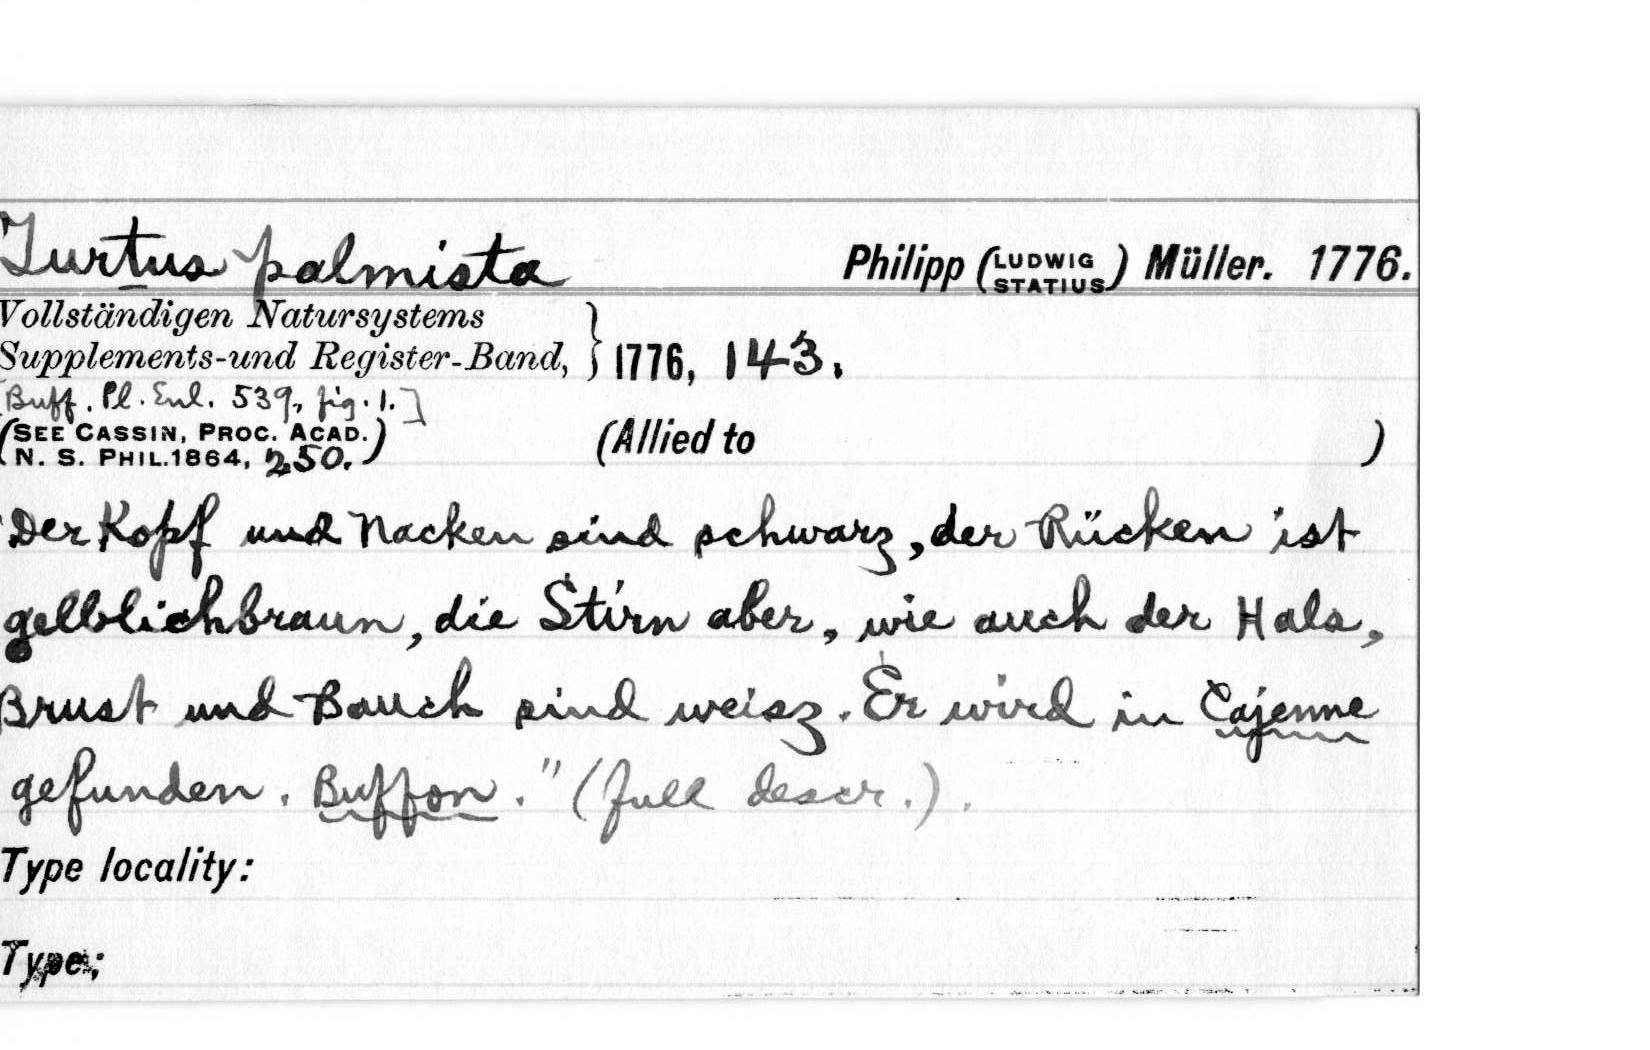 Turtus palmista Philipp (LUDWIG STATIUS) Müller. 1776.
Vollständigen Natursystems
Supplements-und Register-Band, } 1776, 143.
[Buff. Pl. Enl. 539, fig. 1.]
(SEE CASSIN, PROC. ACAD. (Allied to )
N. S. PHIL. 1864, 250.)
"Der Kopf und Nacken sind schwarz, der Rücken ist
gelblichbraun, die Stirn aber, wie auch der Hals,
Brust und Bauch sind weisz. Er wird in Cajenne
gefunden. Buffon." (full descr.).
Type locality:
Type: